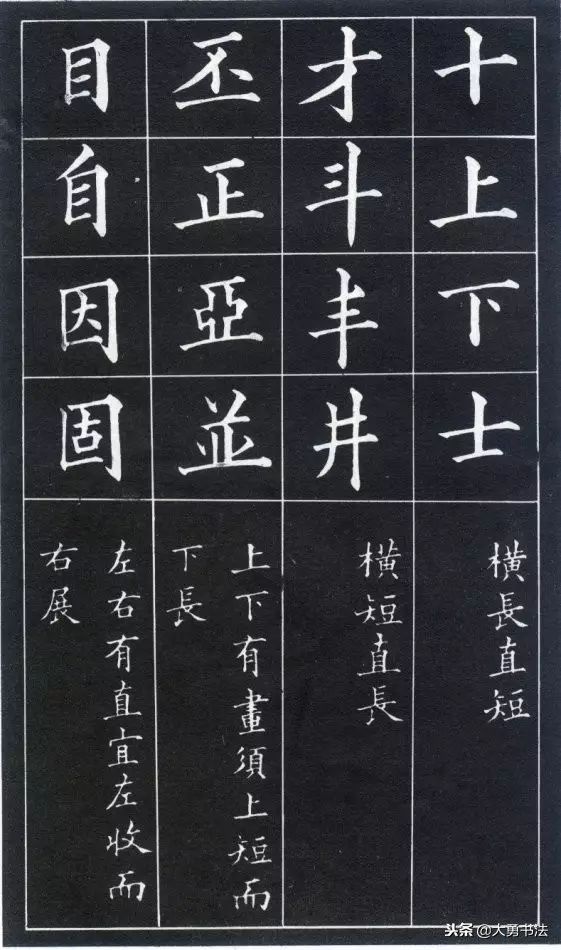 十上下士
橫長直短
才斗丰井
橫短直長
丕正亞並
上下有畫須上短而
下長
目自因固
左右有直宜左收而
右展
头条@大勇书法